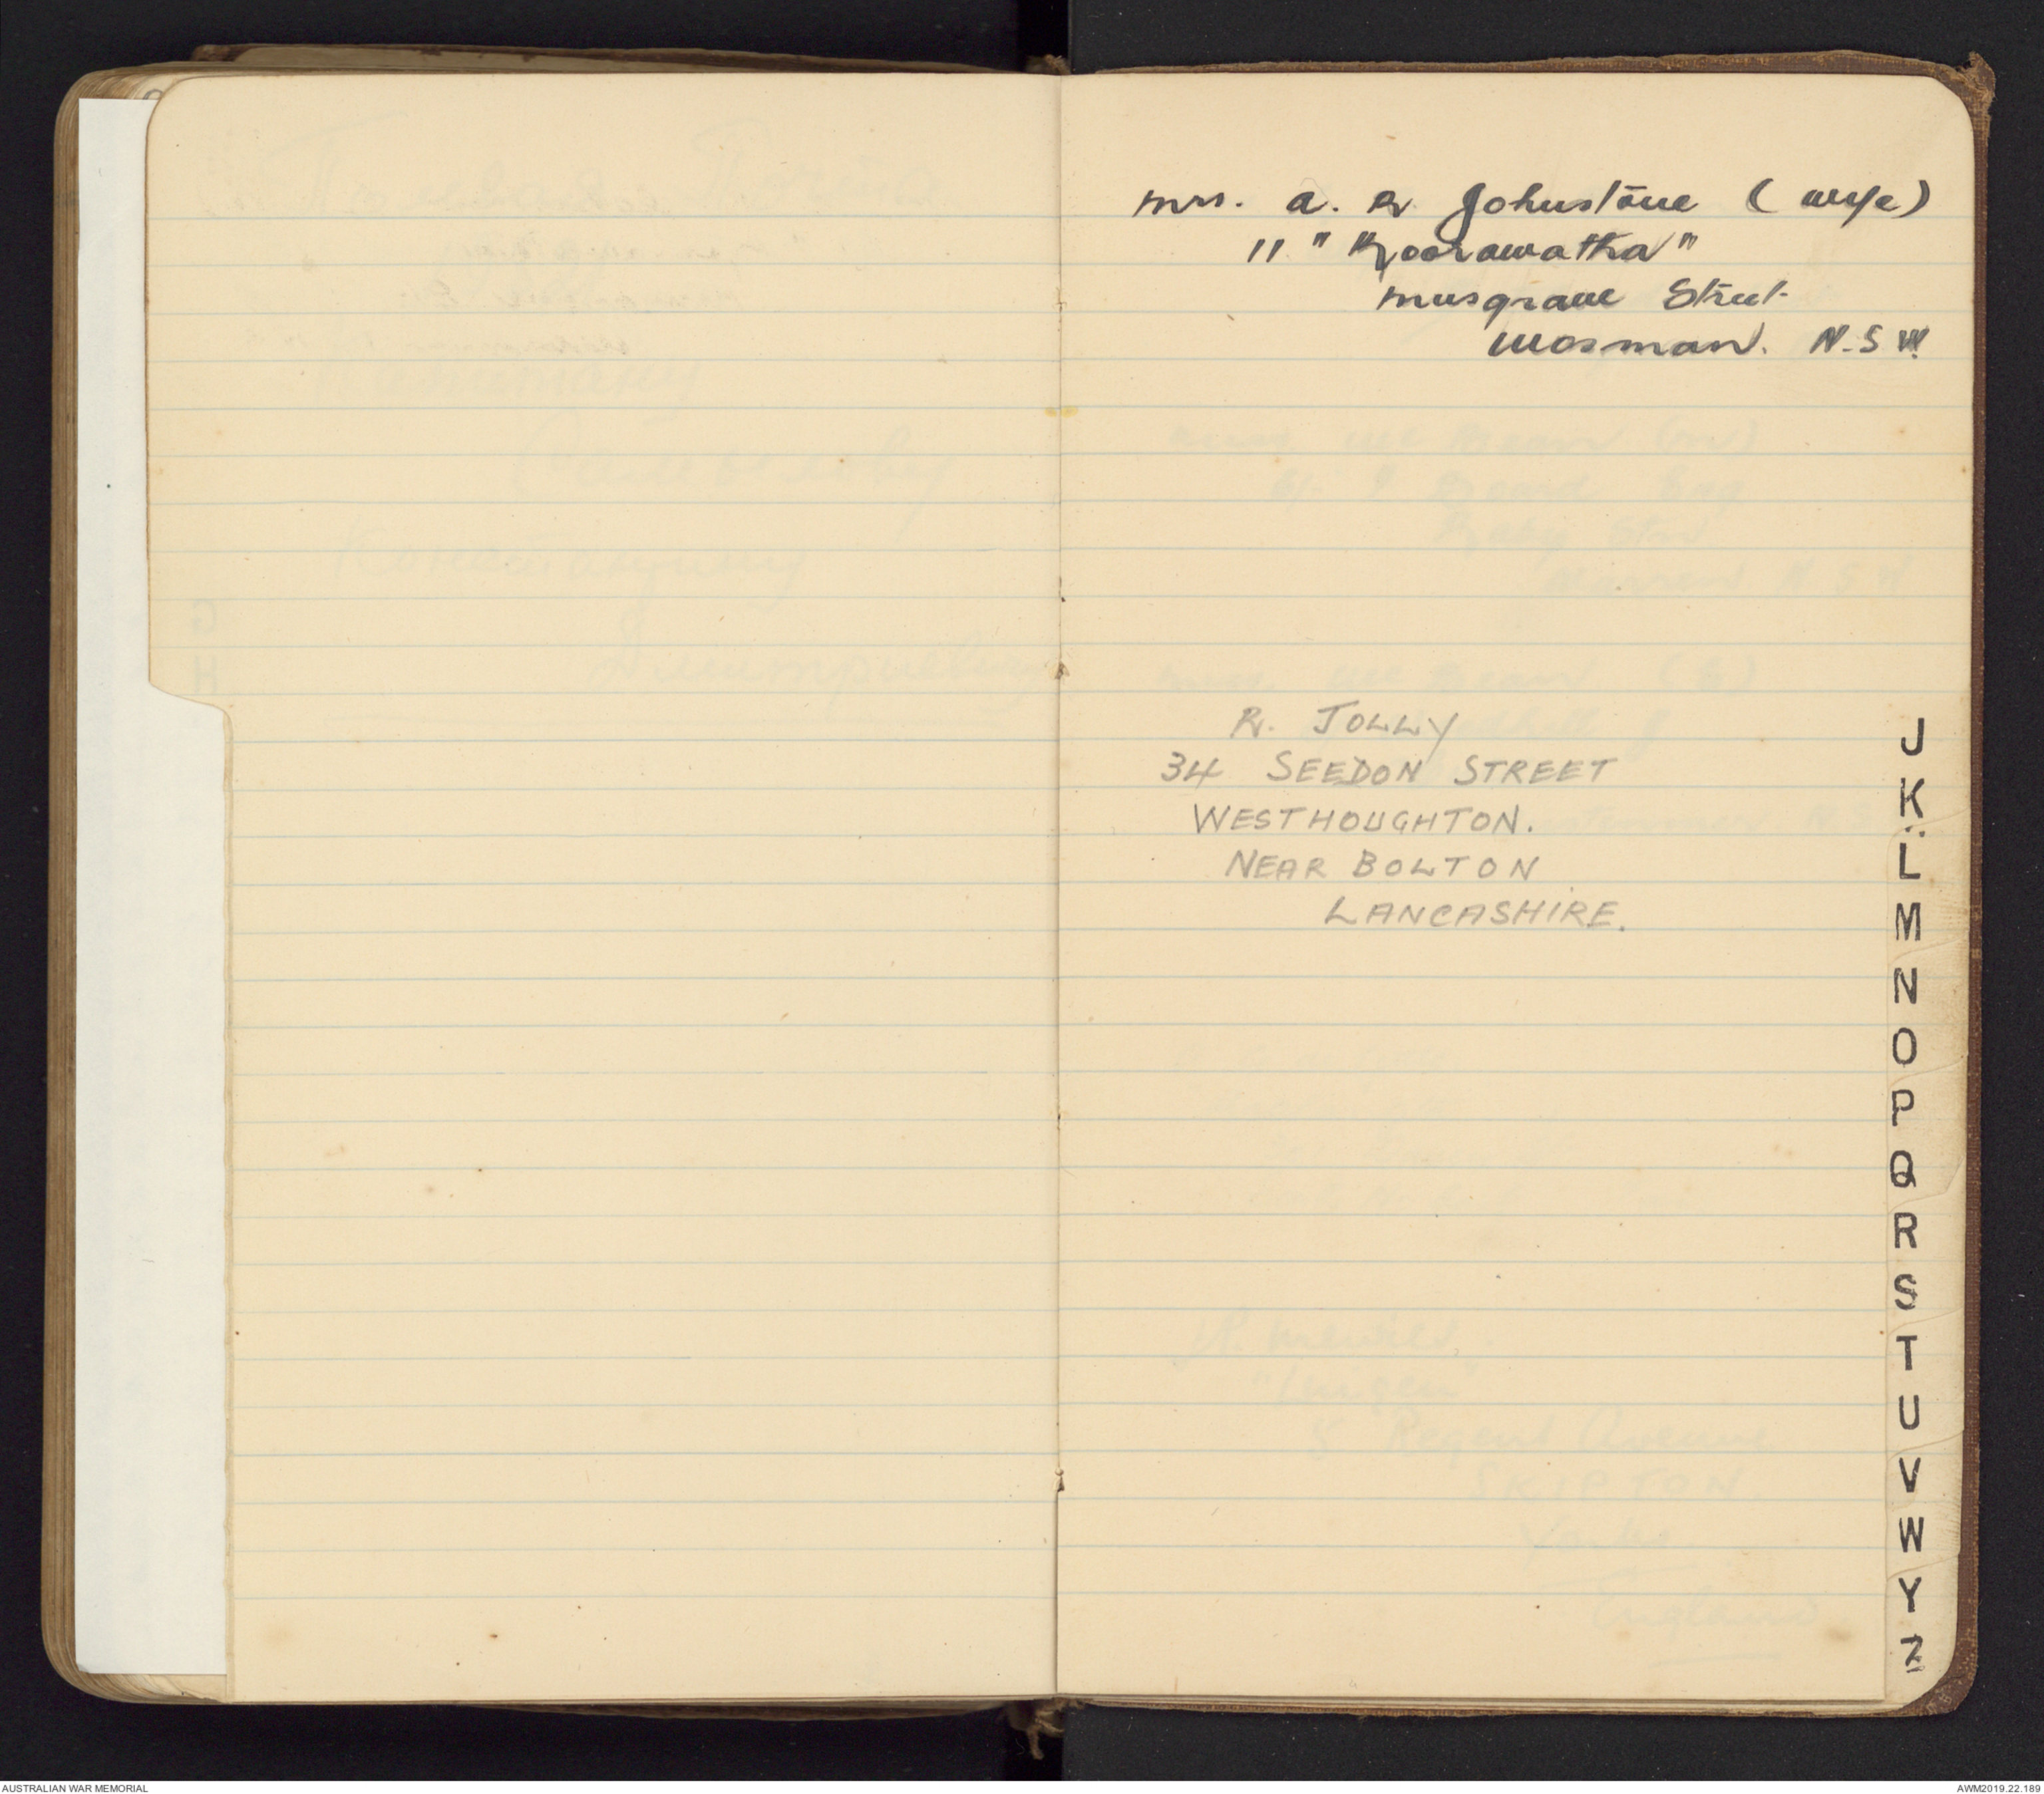 Mrs. A. R Johnstone (wife)
11 "Koorawatha"
Musgrave Street
Mosman. N.S.W.
R. JOLLY
34 SEEDON STREET
WESTHOUGHTON.
NEAR BOLTON
LANCASHIRE.
J
K
L
M
N
O
P
Q
R
S
T
U
V
W
Y
Z
AUSTRALIAN WAR MEMORIAL
AWM2019.22.189